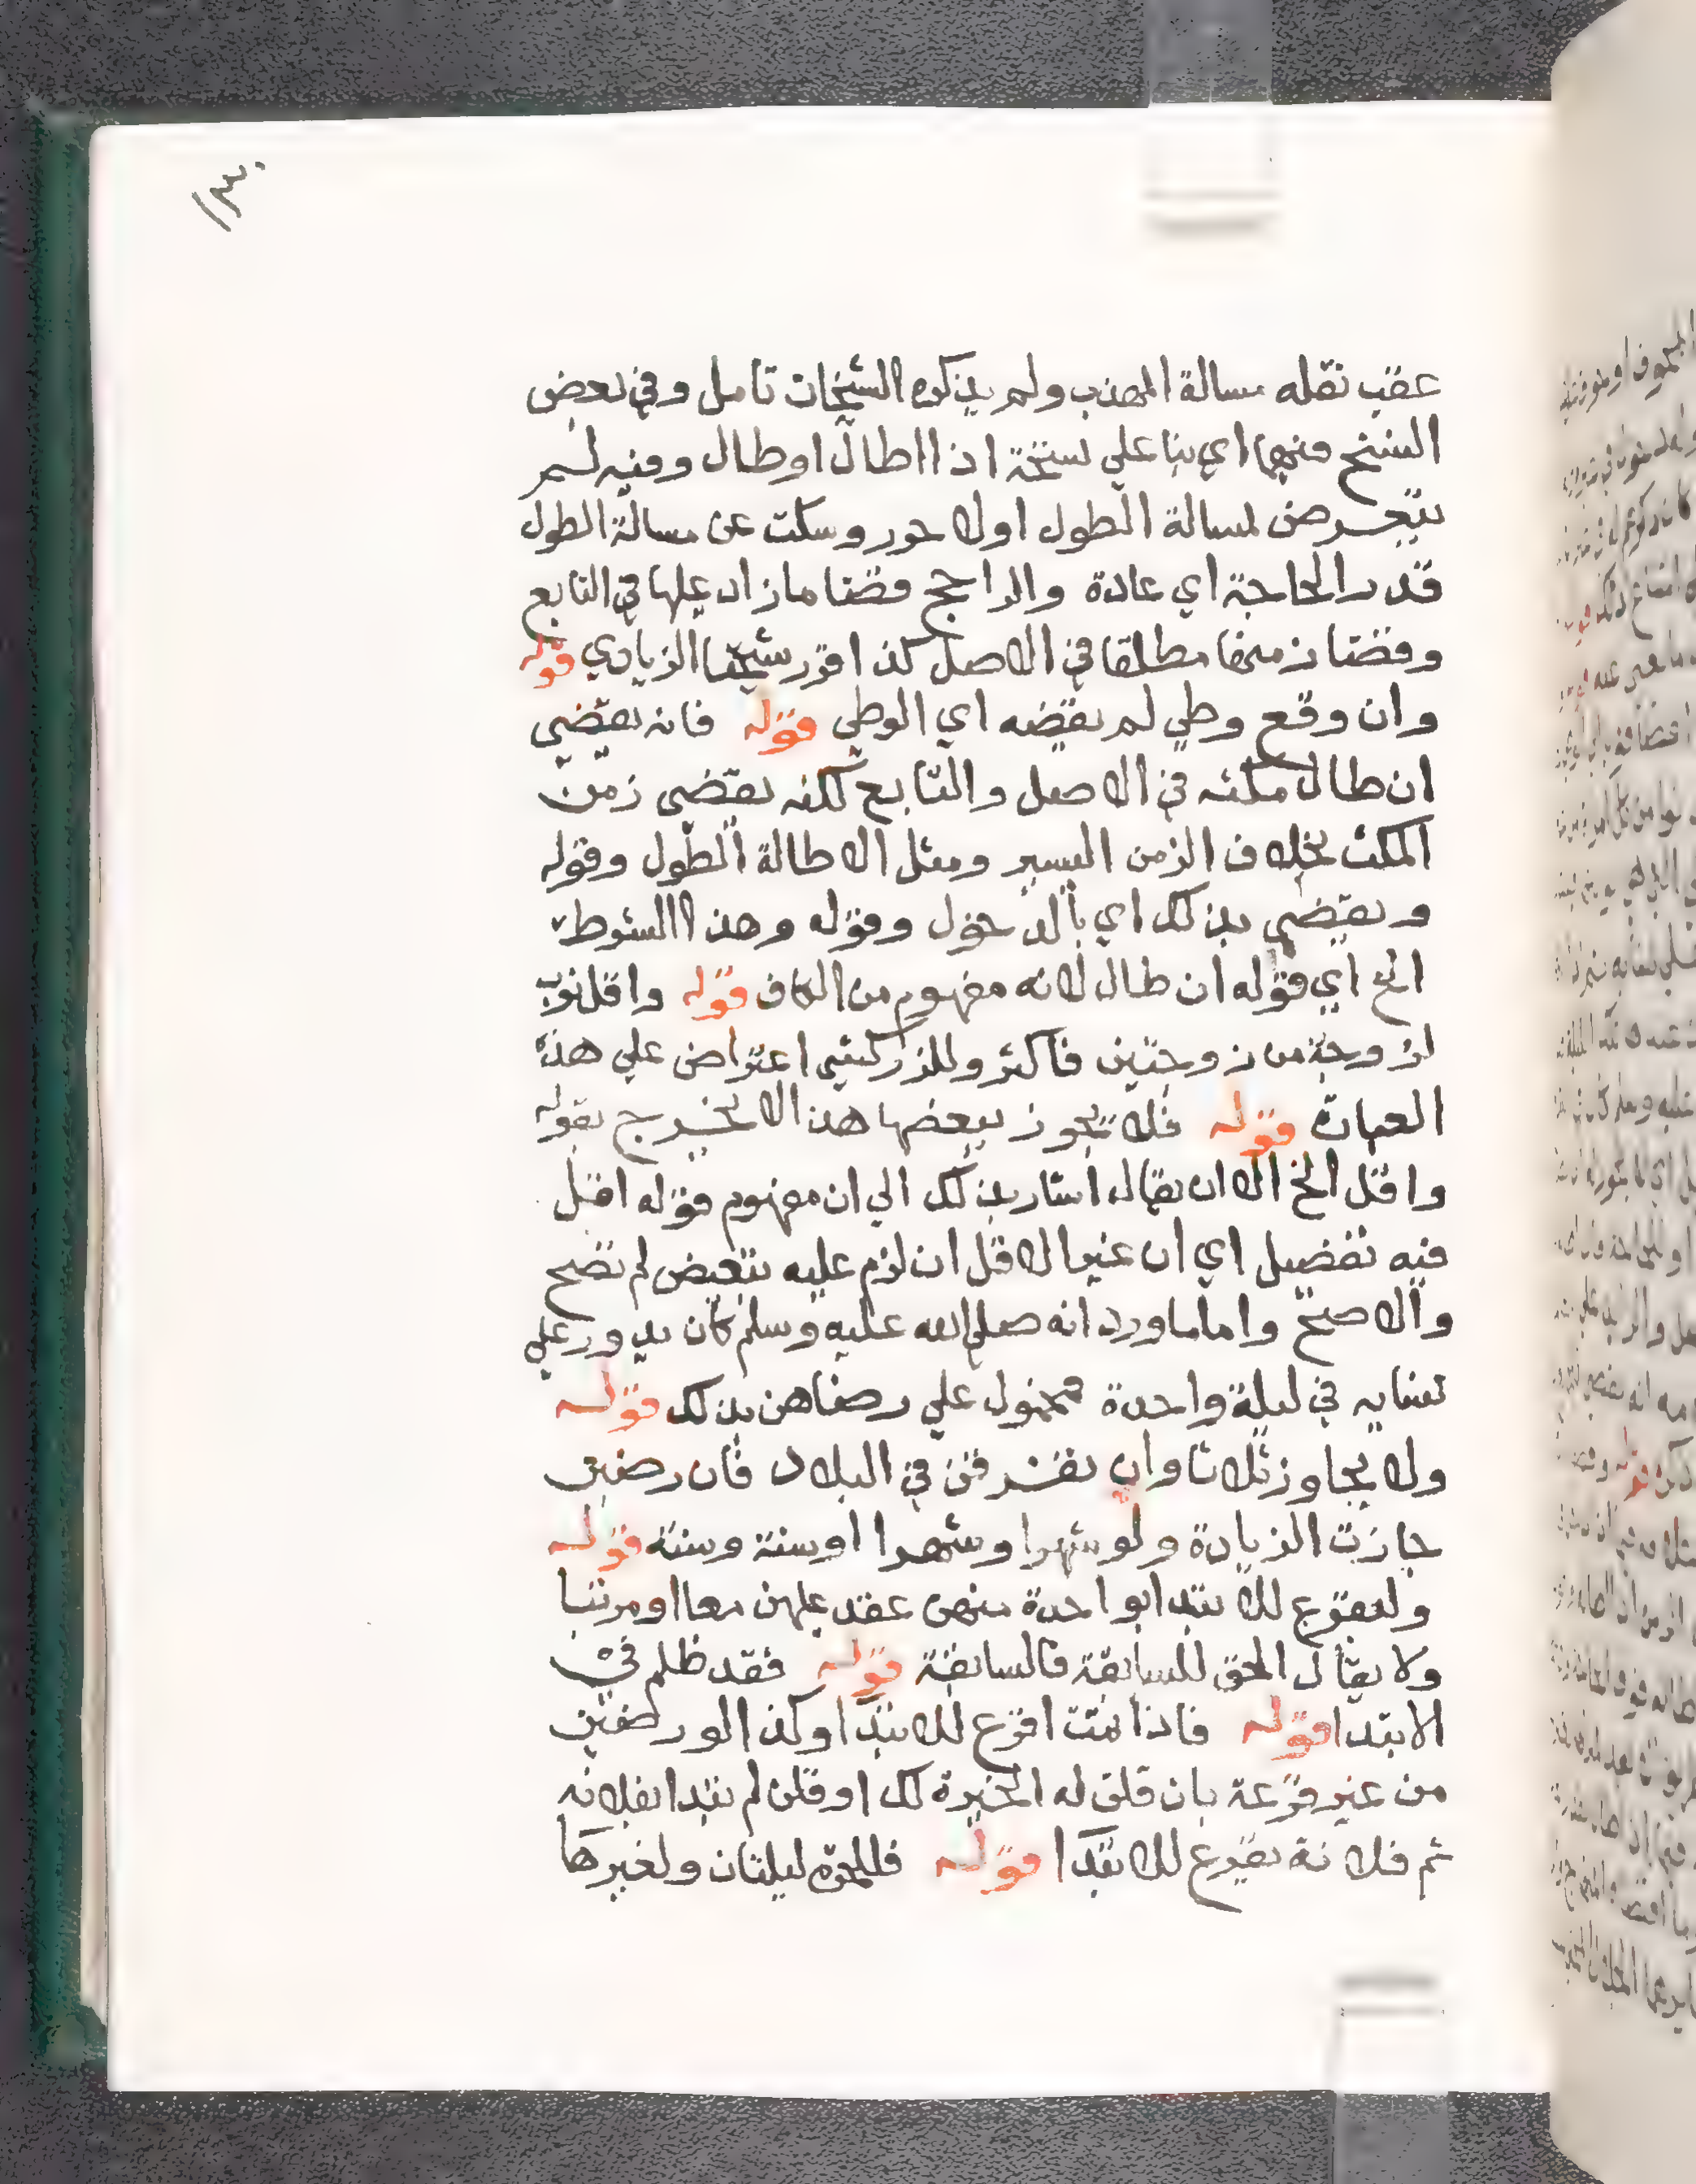 ١٣٠
عقب نقله مسالة المهذب ولم يذكره الشيخان تامل وفي بعض
النسخ فيهما اي بنا علي نسخة اذا اطال او طال وفيه لم
يتعرض لمسالة الطول اولا حور وسكت عن مسالة الطول
قدر الحاجة اي عادة والراجح قضا ما زاد عليها في التابع
وقضا زمنها مطلقا في الاصل كذا قرر شيخنا الزيادي قوله
وان وقع وطي لم يقضه اي الوطي قوله فانه يقضي
ان طال مكثه في الاصل والتابع لكنه يقضي زمن
المكث بخلاف الزمن اليسير ومثل الاطالة الطول وقوله
ويقضي بذلك اي بالدخول وقوله وهذا الشرط
الخ اي قوله ان طال لانه مفهوم من الكاف قوله واقل نوب
لزوجة من زوجتين فاكثر وللزركشي اعتراض علي هذه
العبارة قوله فلا تجوز ببعضها هذا لا يخرج بقوله
واقل الخ الا ان يقال اشار بذلك الي ان مفهوم قوله اقل
فيه تفضيل اي ان غير الاقل ان لزم عليه تبعيض لم تصح
والا صح واما ما ورد انه صلي الله عليه وسلم كان يدور علي
نسايه في ليلة واحدة محمول علي رضاهن بذلك قوله
ولا يجاوز ثلاثا وان تفرقن في البلاد فان رضين
جازت الزيادة ولو شهرا وشهرا او سنة وسنة قوله
وليقرع للابتدا بواحدة منهن عقد عليهن معا او مرتبا
ولا يقال الحق للسابقة فالسابقة قوله فقد ظلم في
الابتدا قوله فاذا تمت اقرع للابتدا وكذا لو رضين
من غير قرعة بان قلن له الخيرة لك او قلن لم نبدا بفلانه
ثم فلانة يقرع للابتدا قوله فللحرة ليلتان ولغيرها